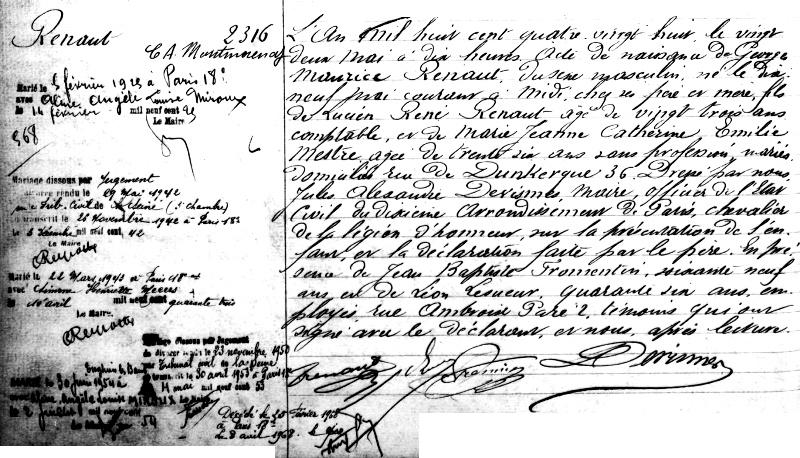 Renaut
2316
C. A. Montmorency
Marié le 5 février 1923 à Paris 18e
avec Angèle Louise Miroux
le 14 février mil neuf cent 23
Le Maire
368
Mariage dissous par Jugement
de divorce rendu le 29 Mai 1942
par Trib. Civil de la Seine (5e chambre)
transcrit le 21 Novembre 1942 à Paris 18e
le 5 mil neuf cent 42
Le Maire
Marié le 22 Mars 1943 à Paris 18e
avec Simone Henriette
le avril mil neuf cent quarante trois
Le Maire
Mariage dissous par Jugement
de divorce rendu le 23 novembre 1950
par Tribunal civil de la Seine
le 30 avril 1953 à Paris
4 mai mil neuf cent 53
Enghien les Bains
le 30 juin 1954 à
Angèle Louise
le 2 juillet mil neuf cent 54
Décédé le 28 Février 1968
à Paris 18e
le 8 avril 1968.
L'An Mil huit cent quatre vingt huit, le vingt
deux Mai à dix heures. Acte de naissance de George
Maurice Renaut, du sexe masculin, né le dix
neuf mai courant à midi, chez ses père et mère, fils
de Lucien René Renaut, âgé de vingt trois ans
comptable, et de Marie Jeanne Catherine Emilie
Mestre, âgée de trente six ans sans profession, mariés,
domiciliés rue de Dunkerque 36. Dressé par nous,
Jules Alexandre Derismes, Maire, officier de l'Etat
Civil du dixième Arrondissement de Paris, chevalier
de la légion d'honneur, sur la présentation de l'en-
fant, et la déclaration faite par le père. En pré-
sence de Jean Baptiste Fromentin, soixante neuf
ans et de Léon Lesueur, quarante six ans, em-
ployés rue Ambroise Paré 2, témoins qui ont
signé avec le déclarant, et nous, après lecture.